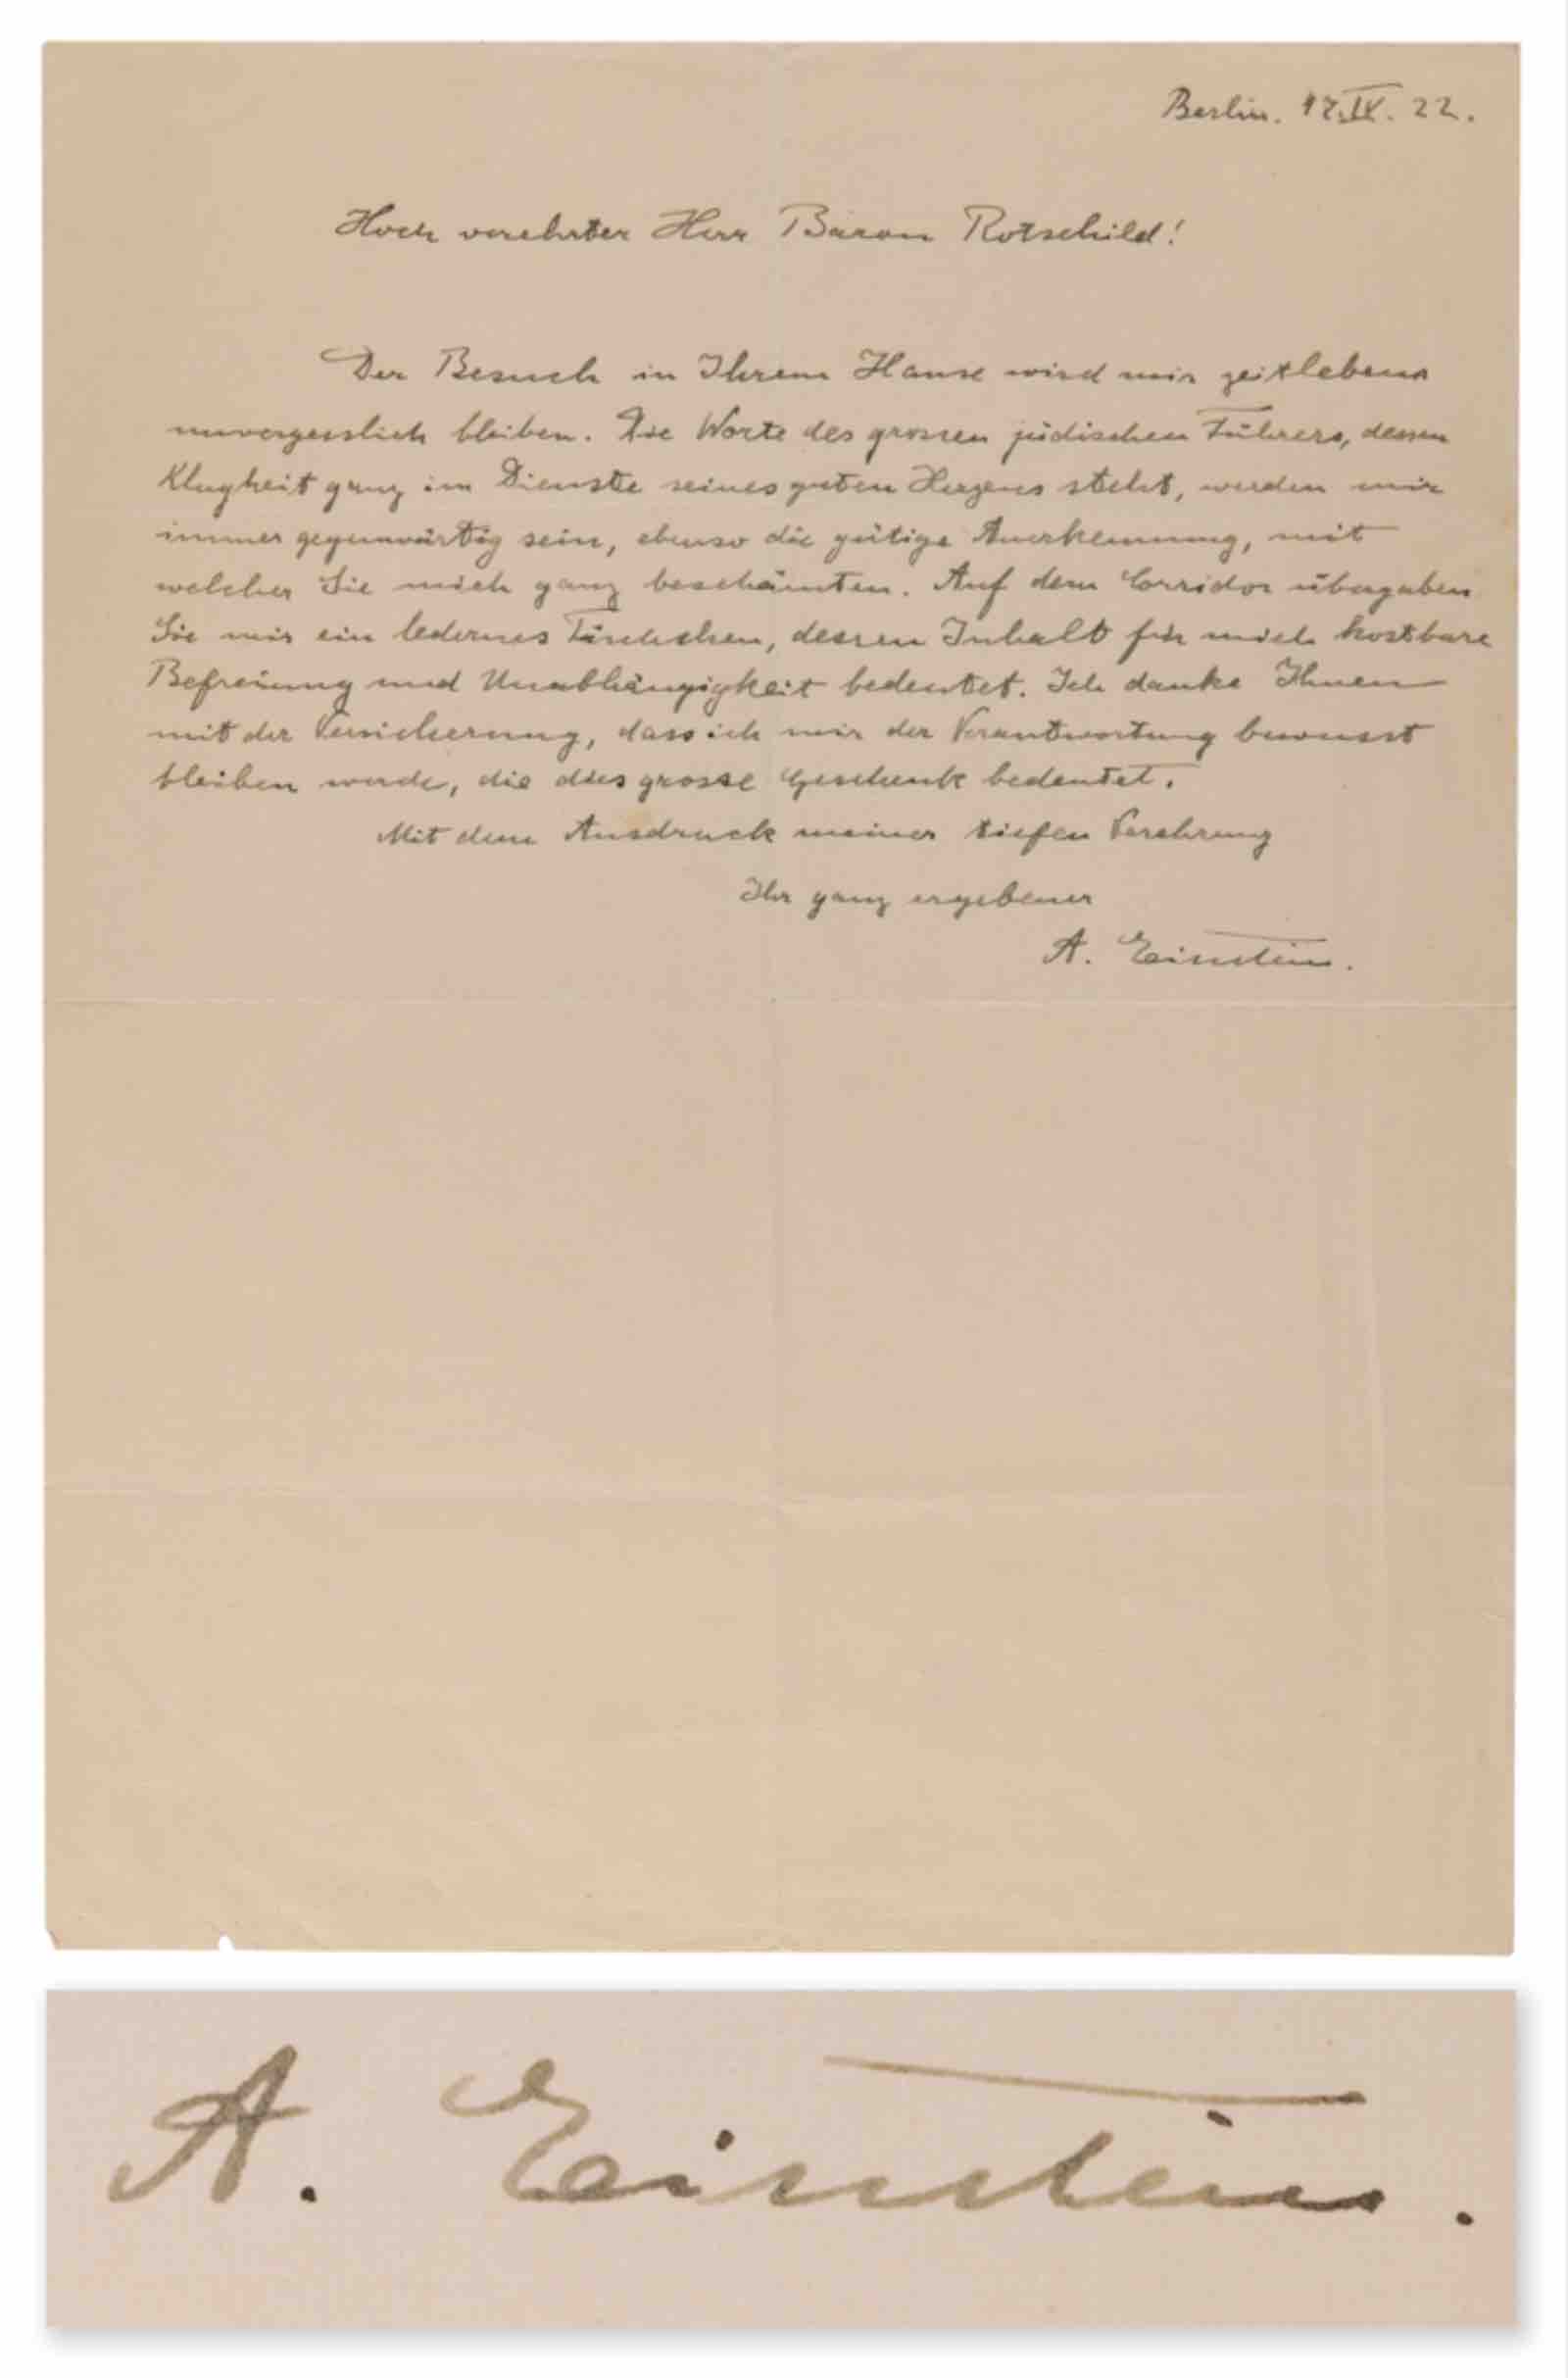 Berlin. 17.IV. 22.
Hoch verehrter Herr Baron Rotschild!
Der Besuch in Ihrem Hause wird mir zeitlebens
unvergesslich bleiben. Die Worte des grossen jüdischen Führers, dessen
Klugheit ganz im Dienste seines guten Herzens steht, werden mir
immer gegenwärtig sein, ebenso die gütige Anerkennung, mit
welcher Sie mich ganz beschämten. Auf dem Corridor übergaben
Sie mir ein ledernes Täschchen, dessen Inhalt für mich kostbare
Befreiung und Unabhängigkeit bedeutet. Ich danke Ihnen
mit der Versicherung, dass ich mir der Verantwortung bewusst
bleiben werde, die dies grosse Geschenk bedeutet.
Mit dem Ausdruck meiner tiefen Verehrung
Ihr ganz ergebener
A. Einstein.
A. Einstein.